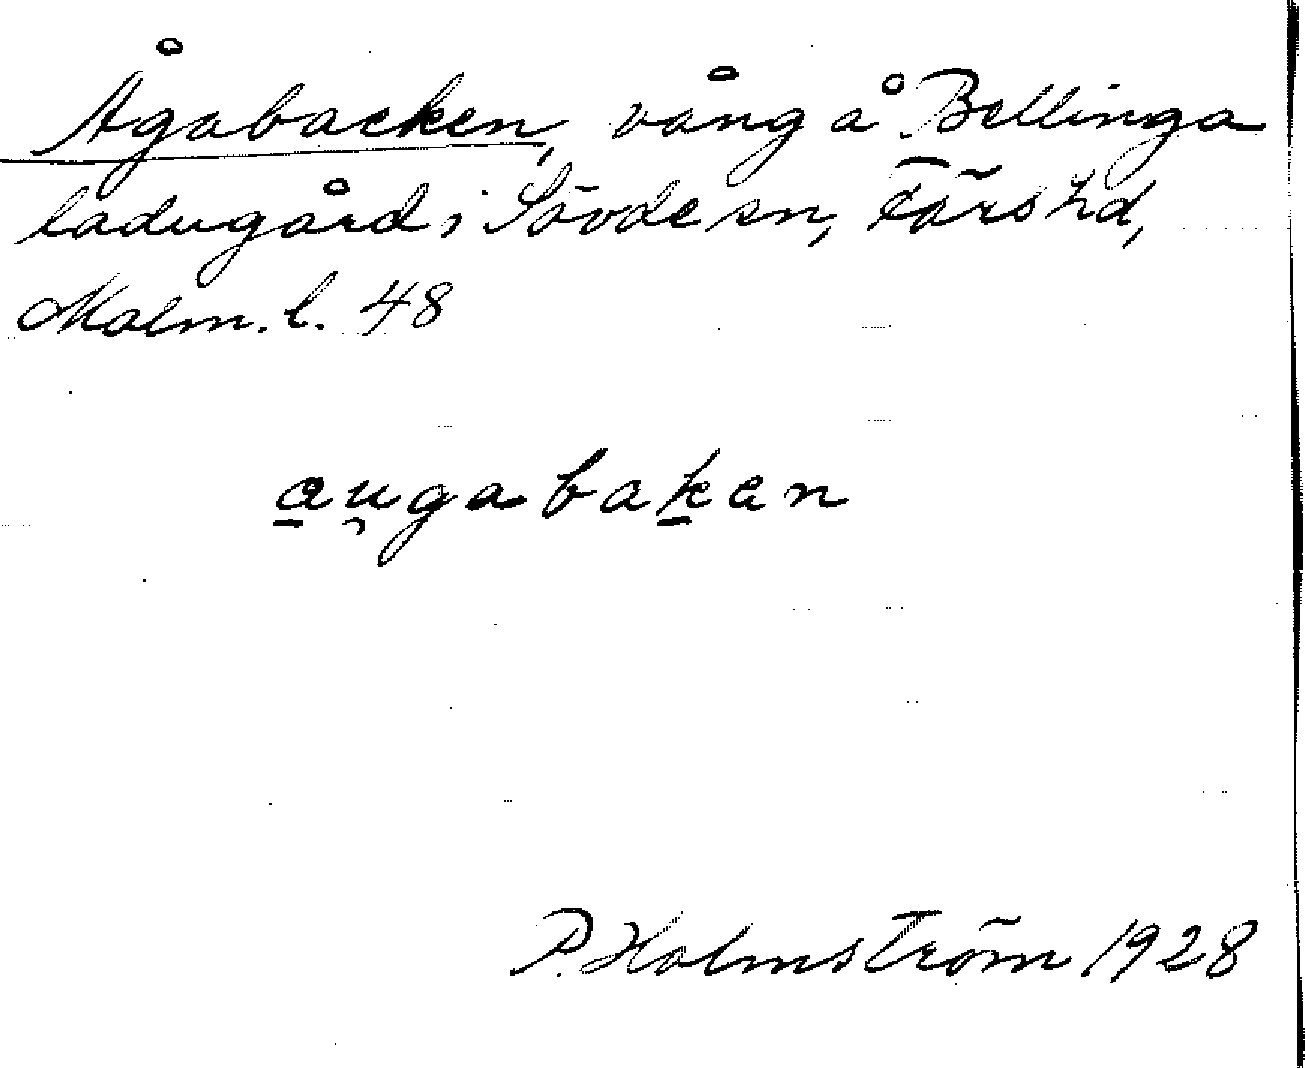 Ågabacken, vång å Bellinga
ladugård i Sövde sn, Färs hd,
Malm. l. 48
a̠u̯gabak̠an
P. Holmström 1928